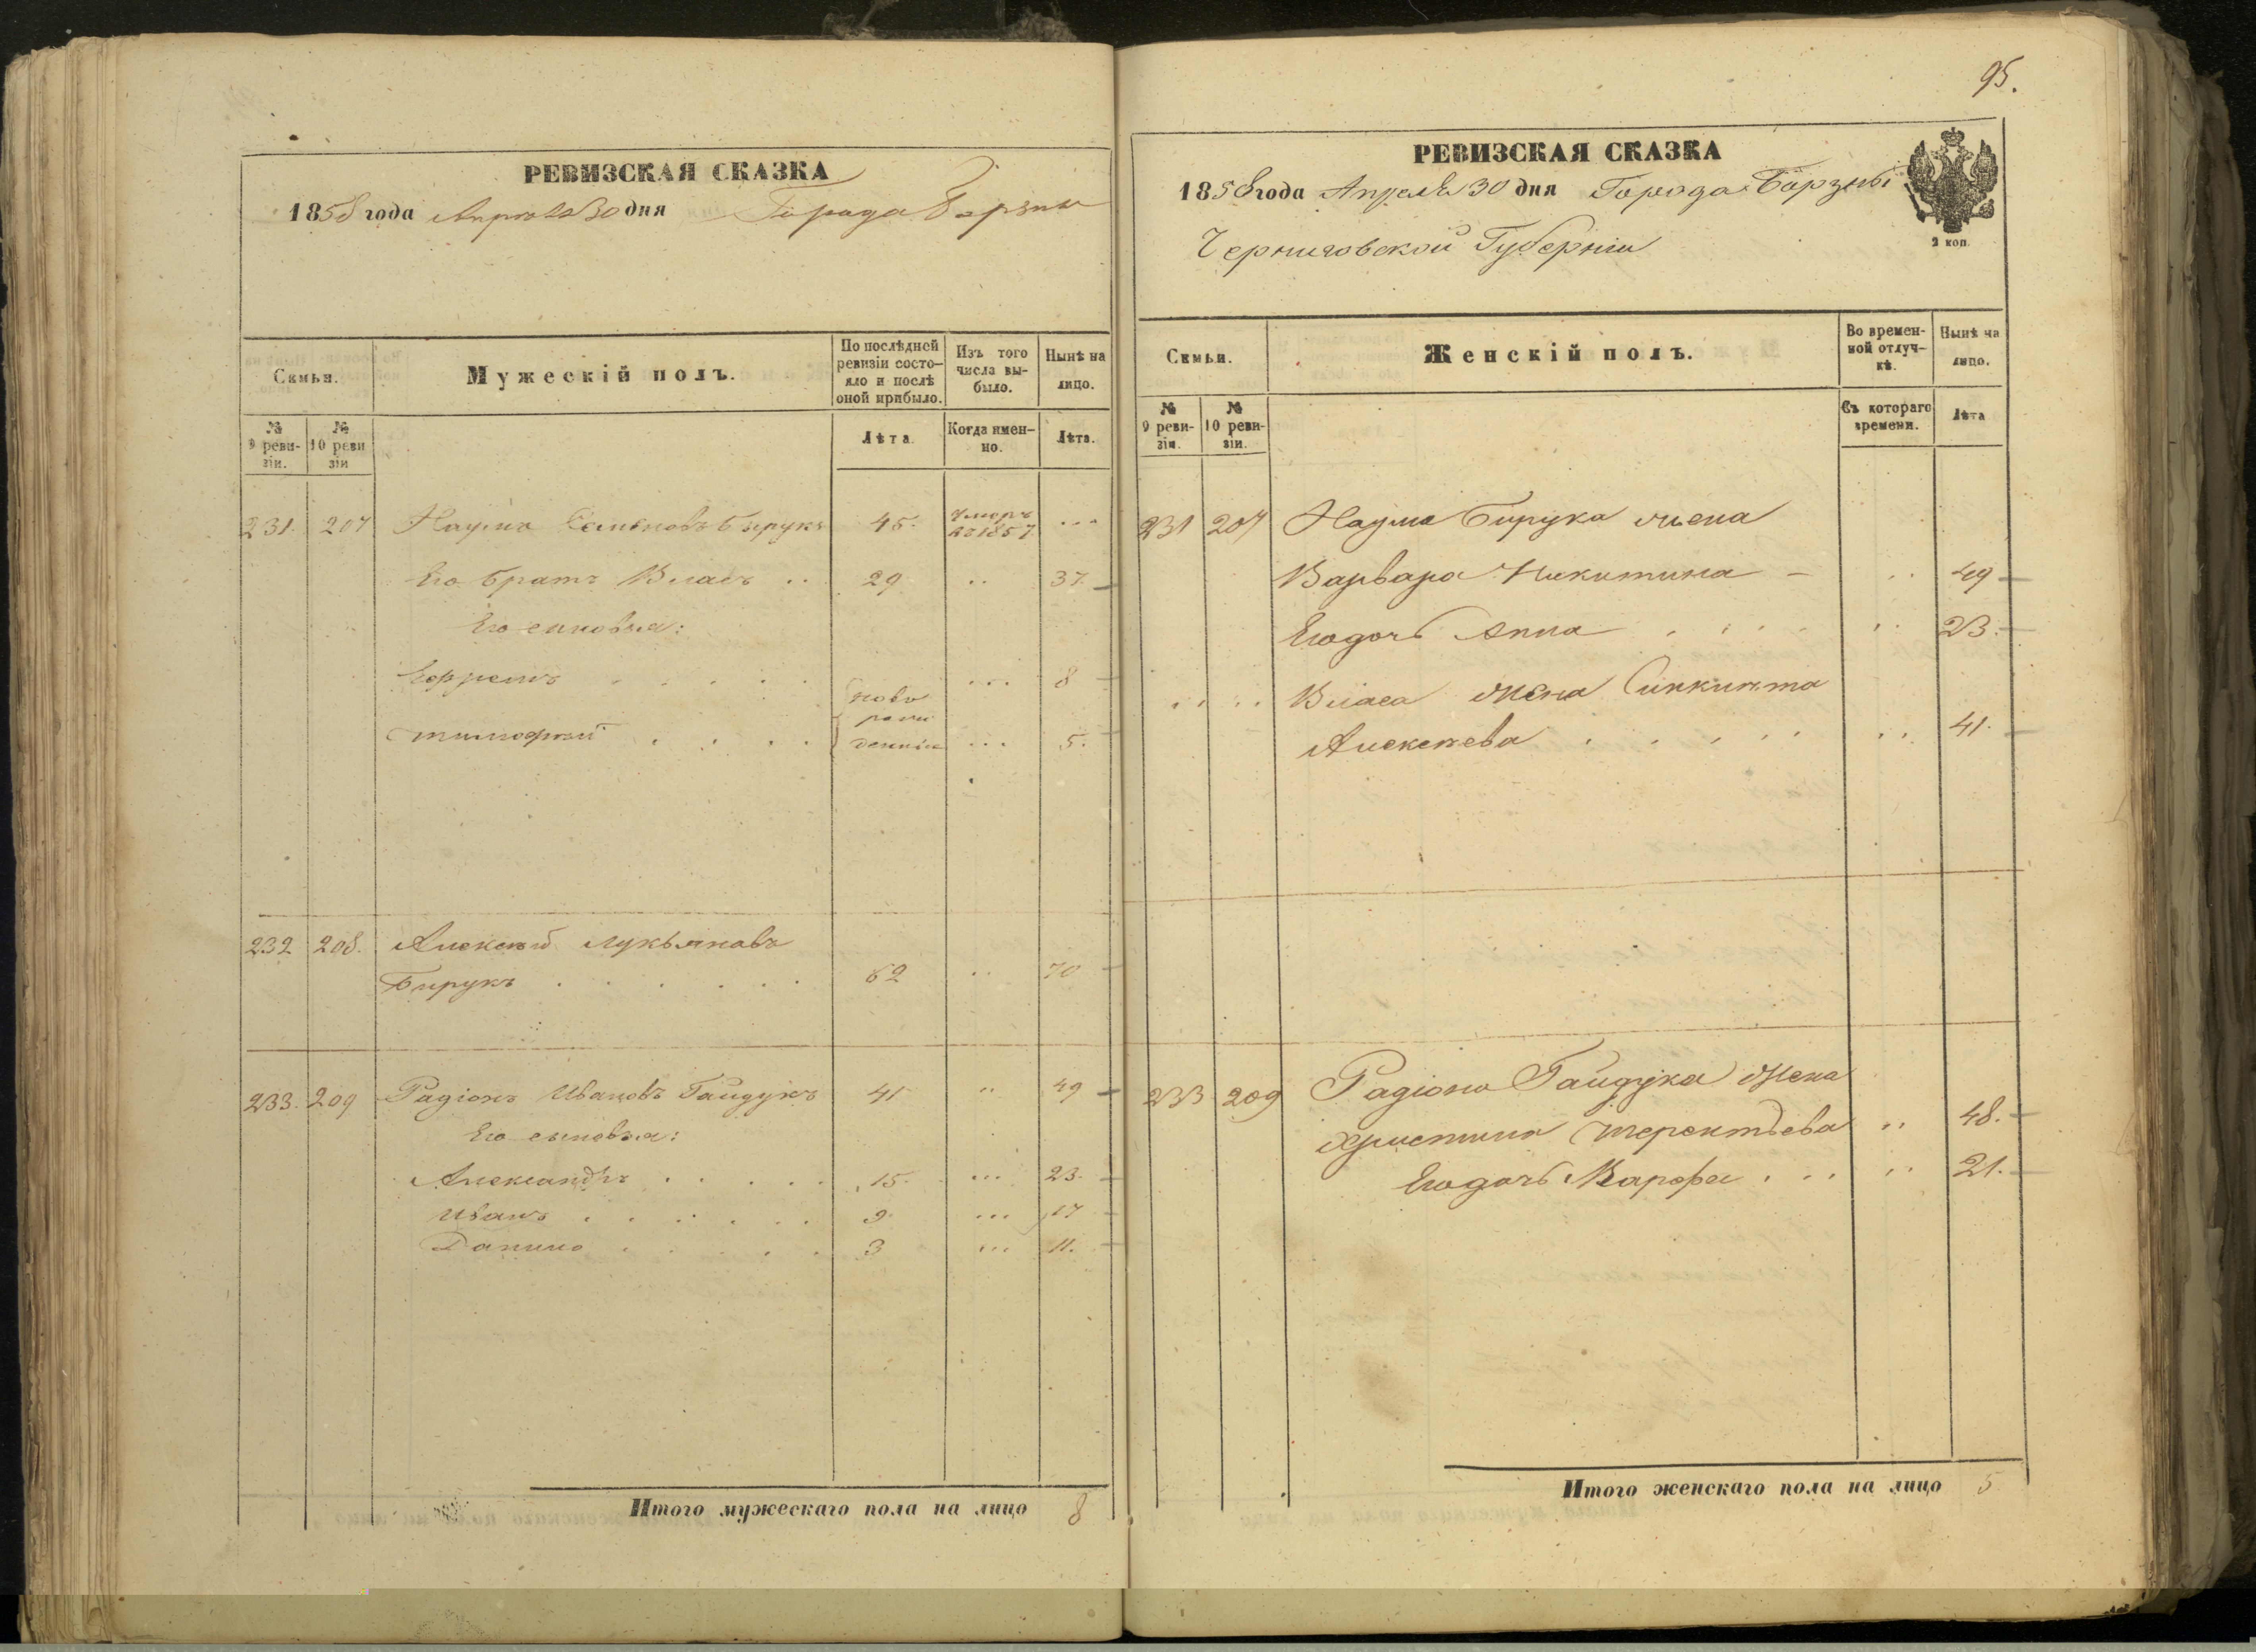 РЕВИЗСКАЯ СКАЗКА
1858 года Апреля 30 дня Города Борзны
Семьи.
Мужескій полъ.
По послѣдней ревизіи состояло и послѣ оной прибыло.
Изъ того числа выбыло.
Нынѣ на лицо.
№ 9 ревизіи.
№ 10 ревизіи
Лѣта
Когда именно.
Лѣта.
231. 207 Наумъ Семеновъ Бирукъ 45. Умеръ 1857 ...
Его братъ Власъ .. 29 .. 37.
Его сыновья:
Ефремъ . . . . . ново ... 8
Тимофей . . . . рожденніи ... 5.
232 208. Алексѣй Лукьяновъ
Бирукъ . . . . . . 62 .. 70
233. 209 Радіонъ Ивановъ Гайдукъ 41 .. 49
Его сыновья:
Александръ . . . . . 15. ... 23.
Иванъ . . . . . . 9. ... 17
Данило . . . . . 3 ... 11.
Итого мужескаго пола на лицо 8
95.
РЕВИЗСКАЯ СКАЗКА
1858 года Апреля 30 дня Города Борзны
Черниговской Губерніи
2 коп.
Семьи.
Женскій полъ.
Во временной отлучкѣ.
Нынѣ на лицо.
№ 9 ревизіи.
№ 10 ревизіи.
Съ котораго времени.
Лѣта
231 207 Наума Бирука жена
Варвара Никитина - .. 49
Его дочь Анна . . . . .. 23.
.. .. Власа жена
Алексѣева . . . . . .. 41.
233 209 Радіона Гайдука жена
Христина Терентьева .. 48.
Его дочь Марфа . . . .. 21.
Итого женскаго пола на лицо 5